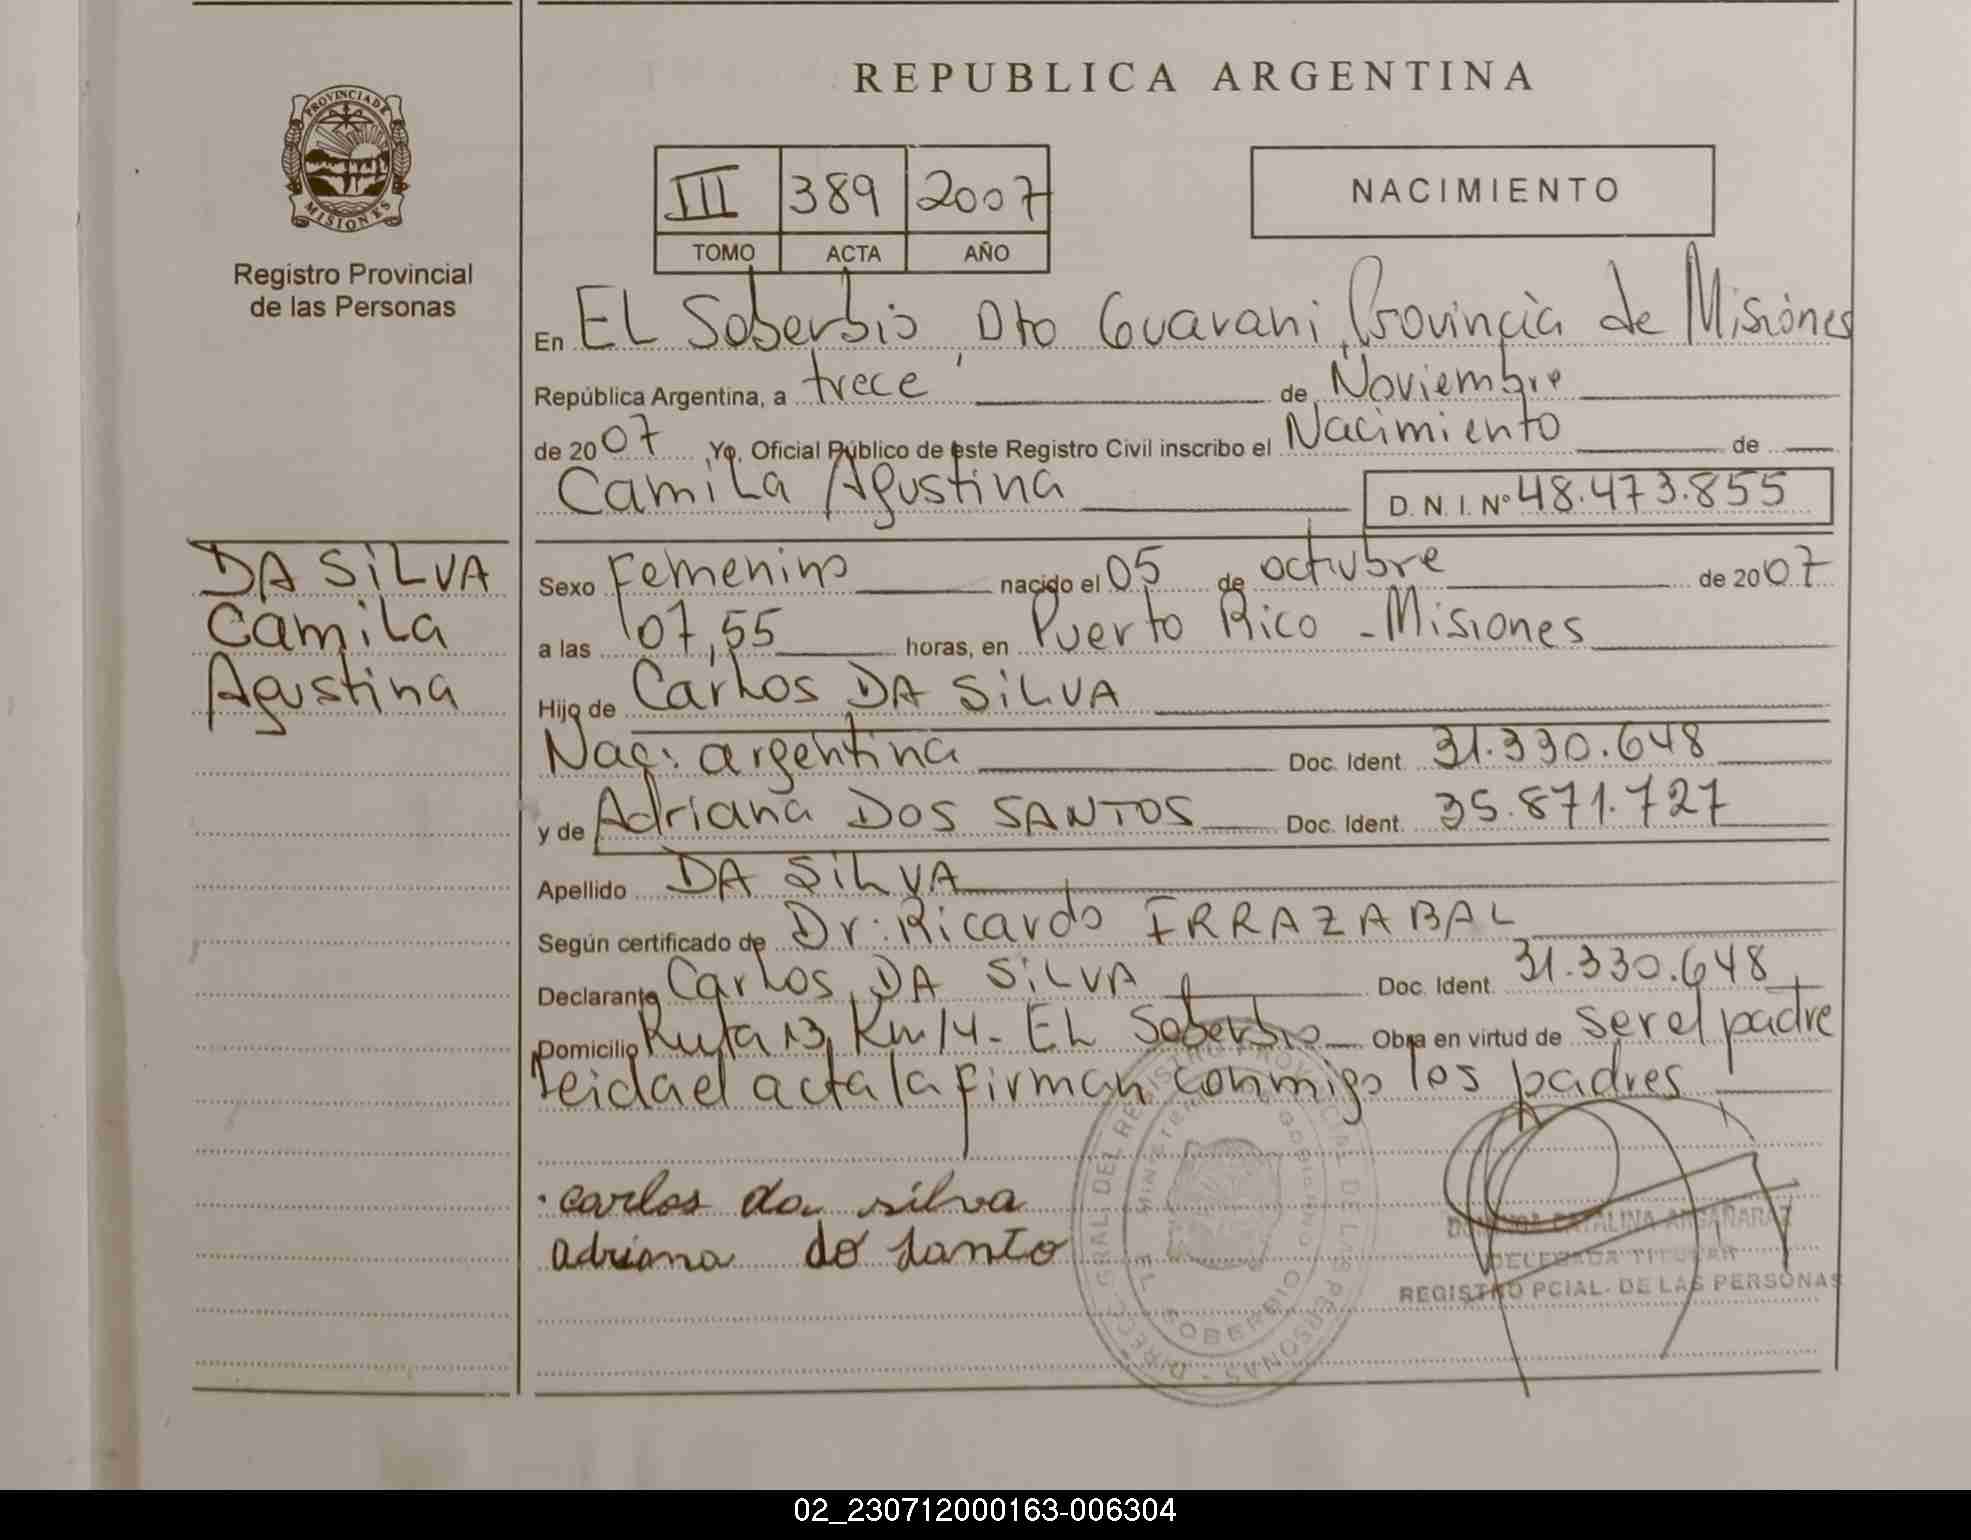 REPUBLICA ARGENTINA
PROVINCIA DE
MISIONES
Registro Provincial
de las Personas
III 389 2007
TOMO ACTA AÑO
NACIMIENTO
En EL Soberbio, Dto Guarani, Provincia de Misiones
República Argentina, a trece de Noviembre
de 2007 Yo, Oficial Público de este Registro Civil inscribo el Nacimiento de
Camila Agustina D. N. I. Nº 48.473.855
DA SiLVA
Camila
Agustina
Sexo Femenino nacido el 05 de octubre de 2007
a las 07,55 horas, en Puerto Rico - Misiones
Hijo de Carlos DA SiLVA
Nac: argentina Doc. Ident. 31.330.648
y de Adriana DOS SANTOS Doc. Ident. 35.871.727
Apellido DA SiLVA
Según certificado de Dr: Ricardo IRRAZABAL
Declarante Carlos DA SiLVA Doc. Ident. 31.330.648
Domicilio Ruta 13, Km 14 - EL Soberbio Obra en virtud de ser el padre
leida el acta la firman conmigo los padres
carlos da silva
adriana do santo
DIRECC. GRAL. DEL REGISTRO PROVINCIAL DE LAS PERSONAS
EL SOBERBIO
CATALINA
DELEGADA TITULAR
REGISTRO PCIAL. DE LAS PERSONAS
02_230712000163-006304